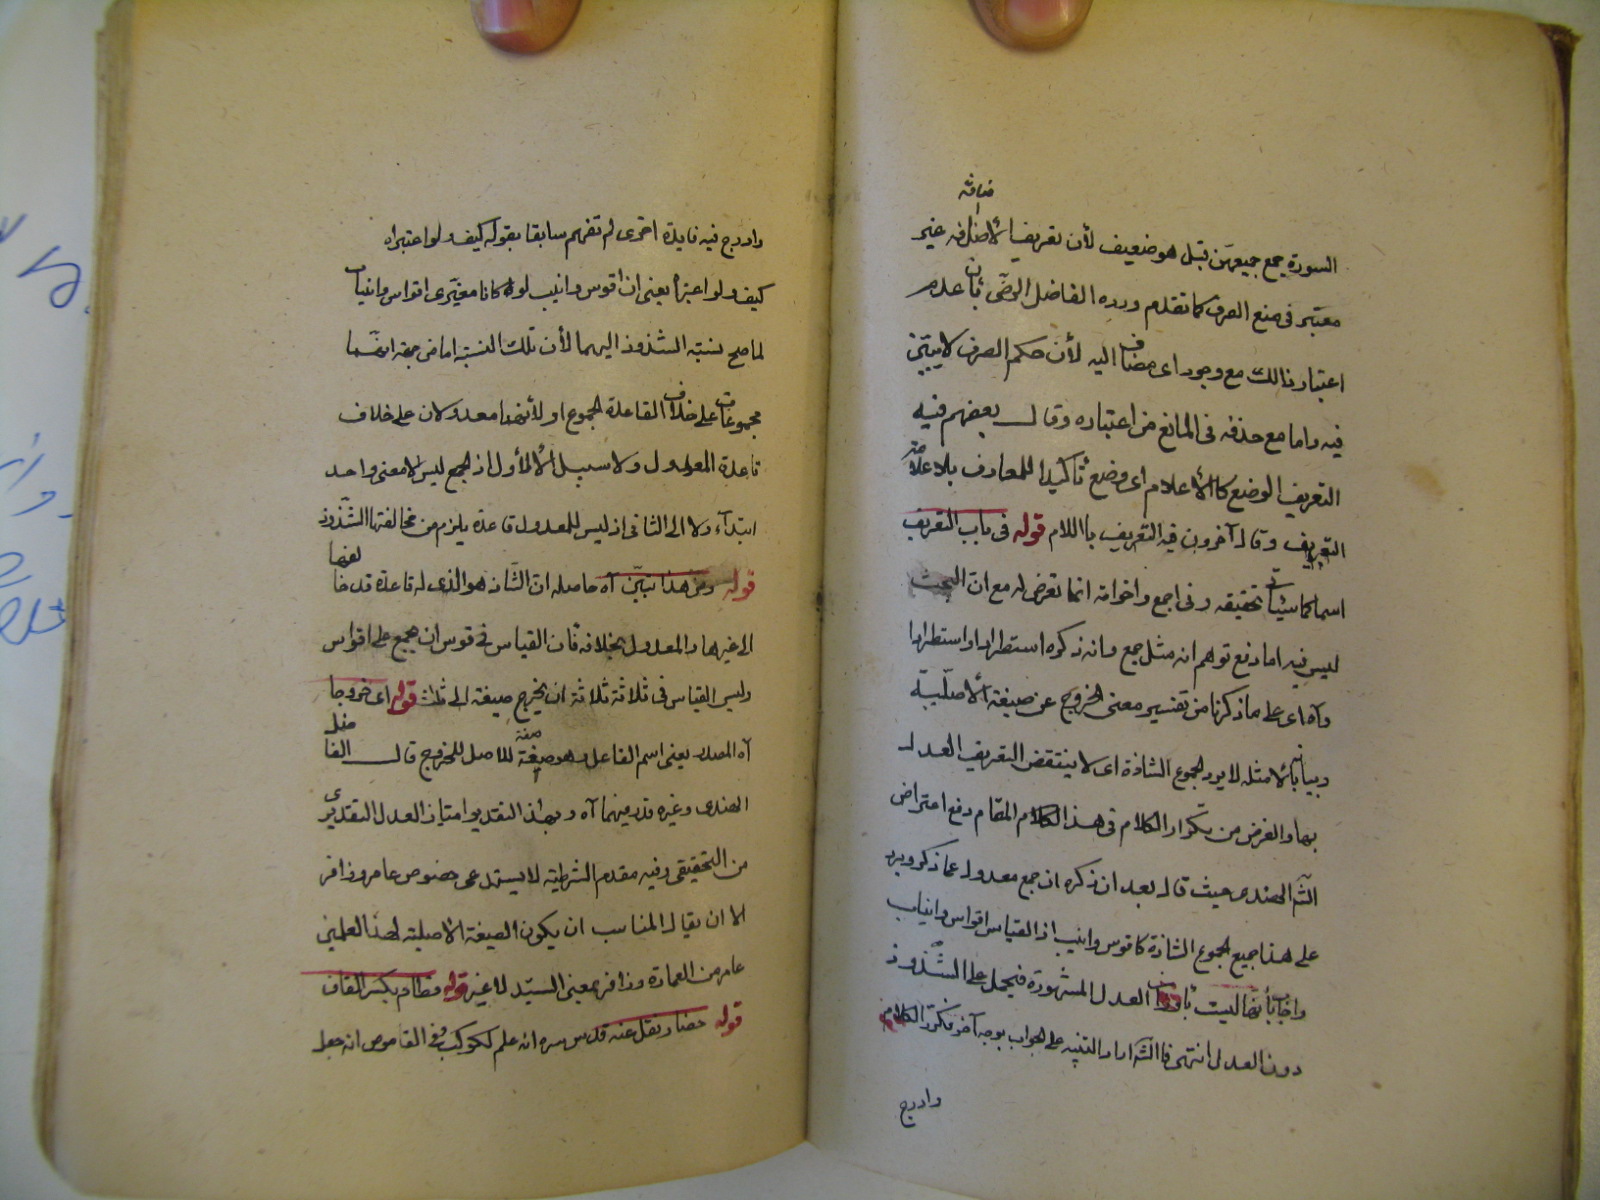 السورة جمع جميعهن قبل هو ضعيف لأن تعريف الاضافة غير
معتبر فى منع الصرف كما تقدم ورده الفاضل الرضى بأن عدم
اعتبار ذالك مع وجود اى مضاف اليه لأن حكم الصرف لا يتبين
فيه واما مع حذفه فى المانع من اعتباره وقال بعضهم فيه
التعريف الوضع كالأعلام اى وضع تأكيدا للمعارف بلا علامة
التعريف وقال آخرون فيه التعريف باللام قوله فى باب التعريف
اسما كما سيأتى تحقيقه وفى اجمع واخواته انما تعرض له مع ان البحث
ليس فيه اما دفع توهم انه مثل جمع وانه ذكره استطرادا واستطرادا
وآه اى على ما ذكرنا من تفسير معنى الخروج عن صيغته الأصلية
وبيانه بالامثله لا يرد الجموع الشاذة اى لا ينتقض التعريف العدل
بها والغرض من تكرار الكلام فى هذا الكلام المقام دفع اعتراض
الشم الهندى حيث قال بعد ان ذكره ان جمع معدول عما ذكر ويرد
على هذا جميع الجموع الشاذة كاقوس وانيب اذ القياس اقواس وانياب
واجاب بأنها ليست العدل المشهورة فيحمل على الشذوذ
دون العدل انتهى فالشم اراد التنبيه على الجواب بوجه آخر فكرر الكلام
وادرج
وادرج فيه فايدة اخرى لم تفهم سابقا بقوله كيف ولو اعتبراه
كيف ولو اعتبر أ يعنى ان اقوس وانيب لو كانا مغيرى اقواس وانياب
لما صح نسبة الشذوذ اليهما لأن تلك النسبة اما من جهة انهما
مجموعان على خلاف القاعدة الجموع او لأنهما معدولان على خلاف
قاعدة المعدول ولا سبيل الى الأول اذ الجمع ليس الا معنى واحد
ابتدآء ولا الى الثانى اذ ليس للمعدول قاعدة يلزم من مخالفتها الشذوذ
قوله ومن هذا تبين آه حاصله ان الشاذ هو الذى له قاعدة قد خالفها
الى غيرها والمعدول بخلافه فان القياس فى قوس ان يجمع على اقواس
وليس القياس فى ثلاثة ثلاثة ان يخرج صيغته الى ثلث قوله اى خروجا
آه المصدر يعنى اسم الفاعل وهو صفة للاصل للخروج قال الفاضل
الهندى وغيره قدر منهما آه وبهذا التقدير امتياز العدل التقديرى
من التحقيقى وفيه مقدم الشرطية لا يستدعى خصوص عامر وزافر
الا ان يقال المناسب ان يكون الصيغة الاصلية لهذا العلمين
عامر من العمارة وزافر بمعنى السيد لا غير قوله قطام بكسر القاف
قوله حضار نقل عنه قدس سره انه علم لكوكب وفى القاموس انه جعل